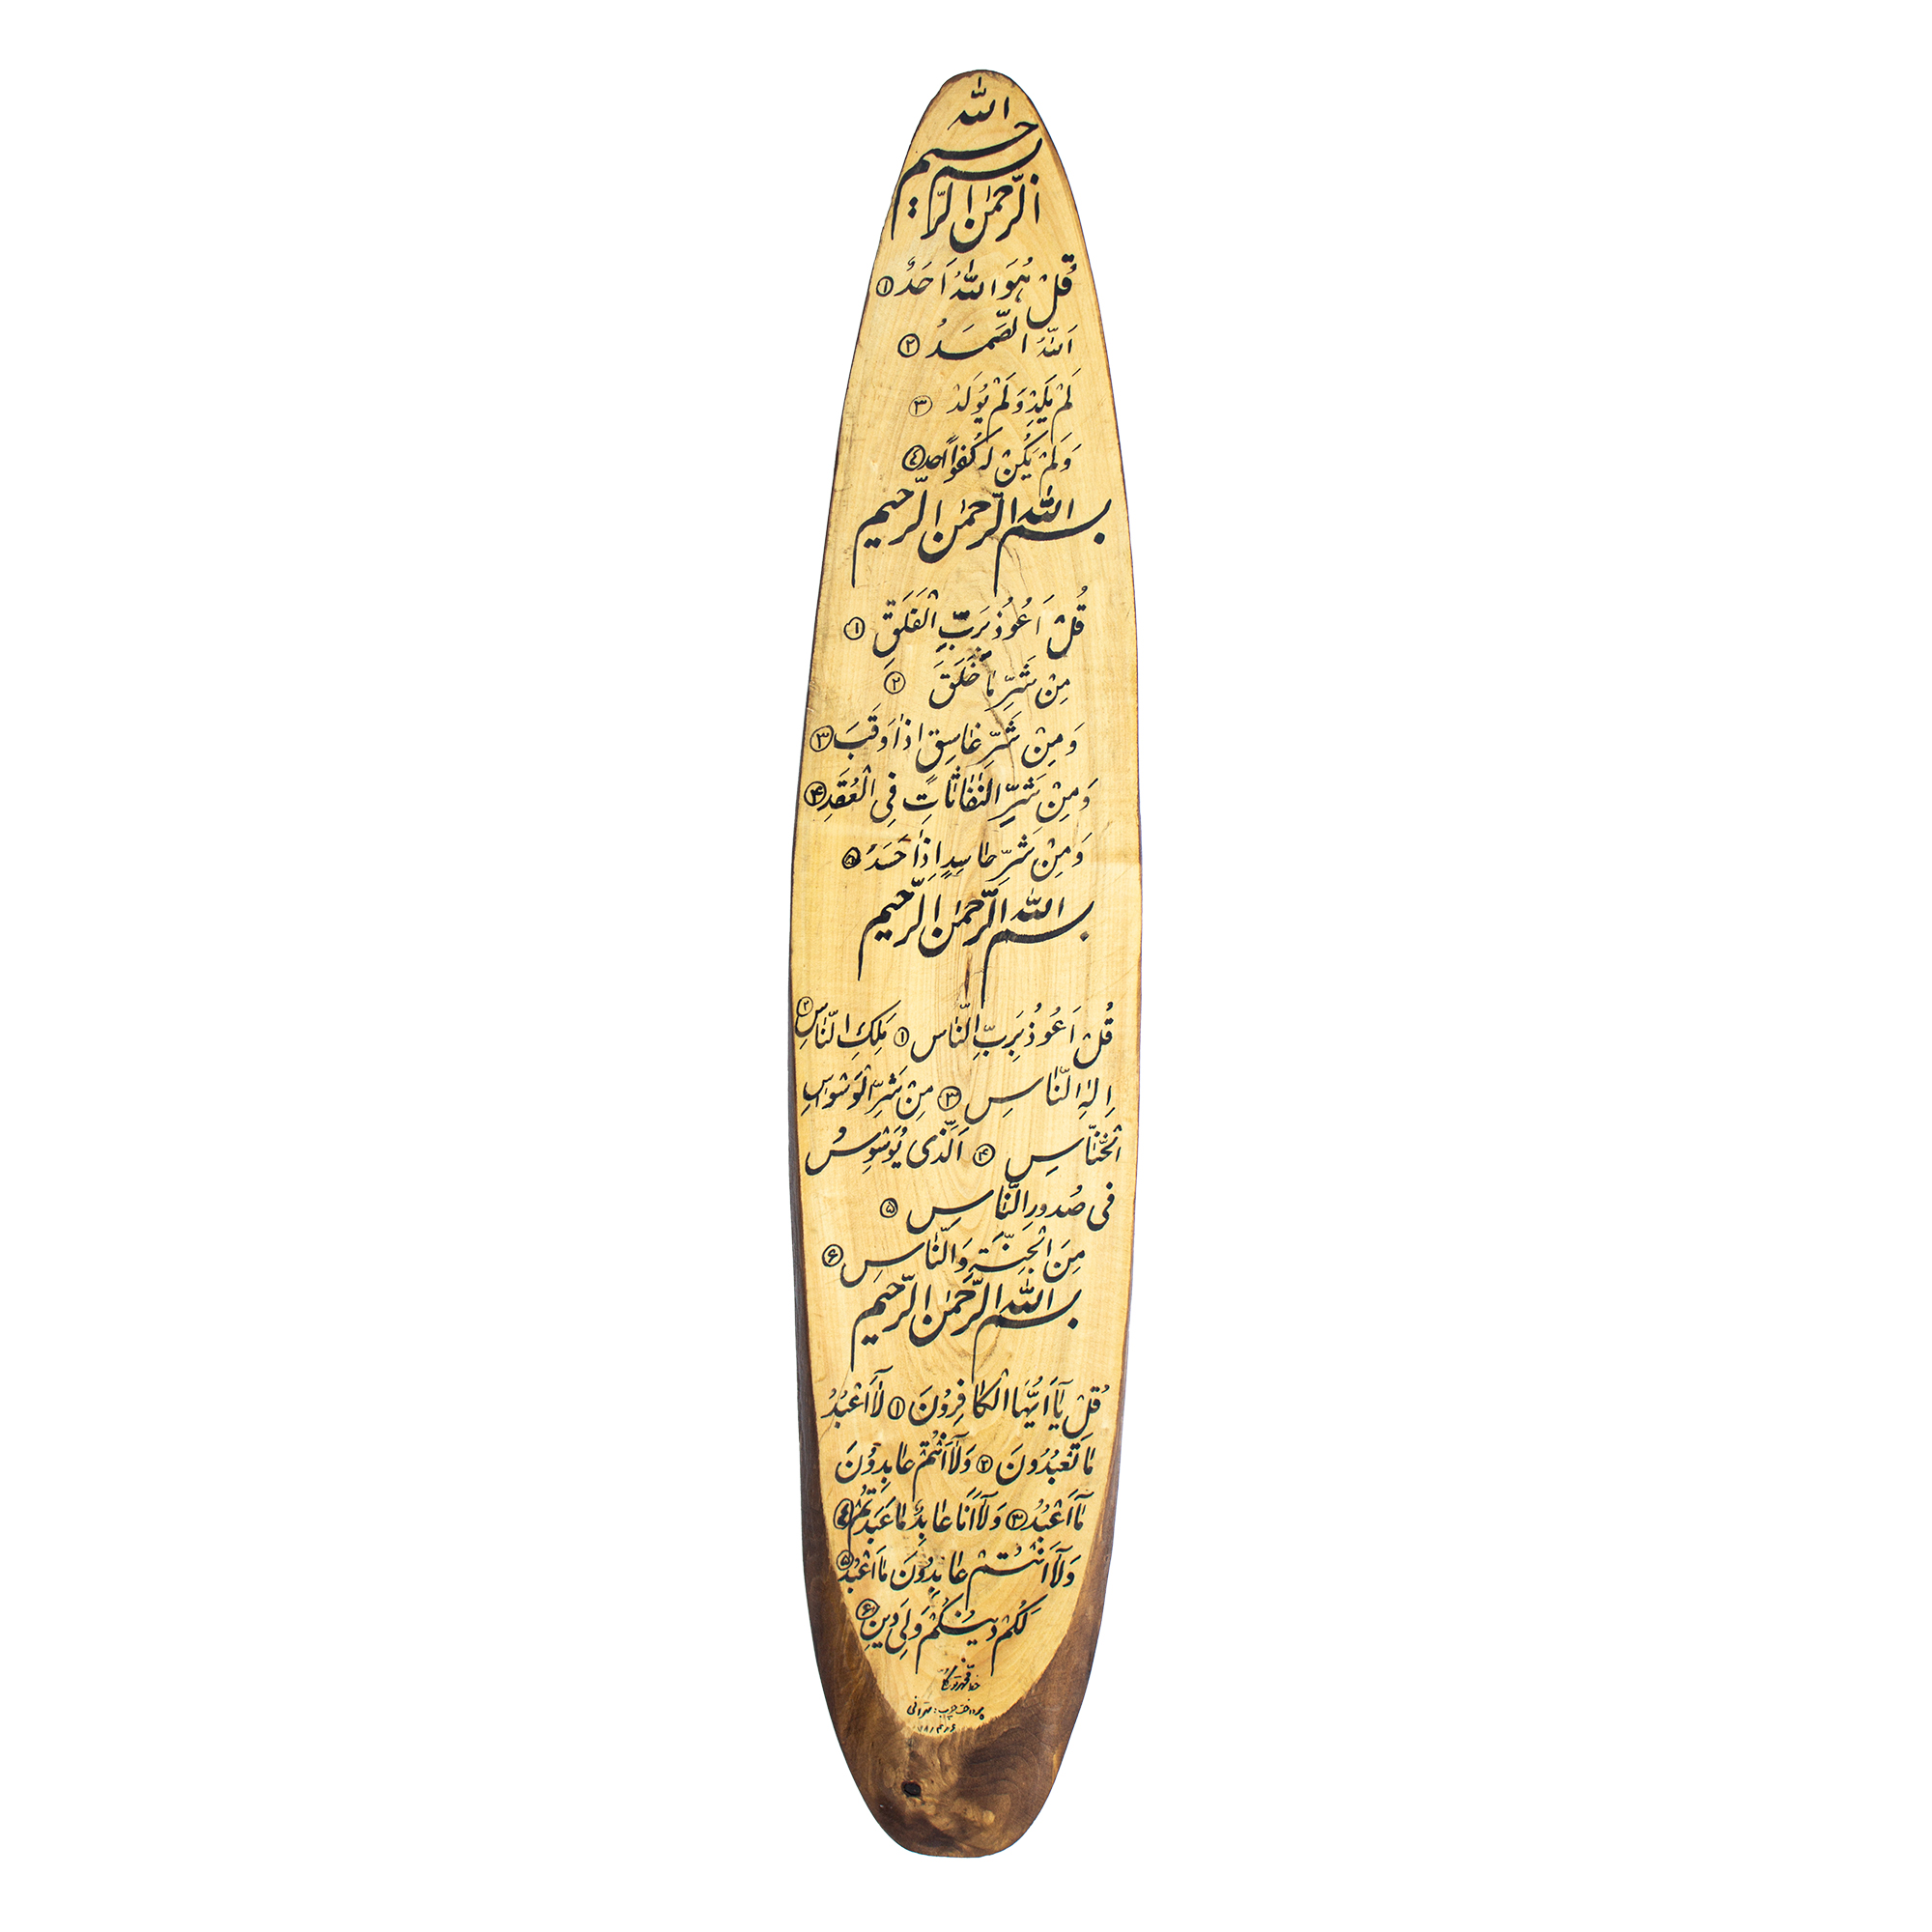 بسم الله
الرحمن الرحیم
قُلْ هُوَ اللهُ اَحَدٌ ۱
اَللهُ الصَّمَدُ ۲
لَمْ یَلِدْ وَلَمْ یُولَدْ ۳
وَلَمْ یَکُنْ لَهُ کُفُواً احد ٤
بسم الله الرحمن الرحیم
قُلْ اَعُوذُ بِرَبِّ الْفَلَقِ ۱
مِنْ شَرِّ مٰا خَلَقَ ۲
وَمِنْ شَرِّ غٰاسِقٍ اِذٰا وَقَبَ ۳
وَمِنْ شَرِّ النَّفّٰاثٰاتِ فِی الْعُقَدِ ۴
وَمِنْ شَرِّ حٰاسِدٍ اِذٰا حَسَدَ ۵
بسم الله الرحمن الرحیم
قُلْ اَعُوذُ بِرَبِّ النّٰاسِ ۱ مَلِکِ النّٰاسِ ۲
اِلٰهِ النّٰاسِ ۳ مِنْ شَرِّ الْوَسْوٰاسِ
الْخَنّٰاسِ ۴ اَلَّذی یُوَسْوِسُ
فی صُدورِ النّٰاسِ ۵
مِنَ الْجِنَّةِ وَالنّٰاسِ ۶
بسم الله الرحمن الرحیم
قُلْ یٰا اَیُّهَا الْکٰافِرُونَ ۱ لٰا اَعْبُدُ
مٰا تَعْبُدُونَ ۲ وَلٰا اَنْتُمْ عٰابِدُونَ
مٰا اَعْبُدُ ۳ وَلٰا اَنَا عٰابِدٌ مٰا عَبَدْتُمْ ٤
وَلٰا اَنْتُمْ عٰابِدُونَ مٰا اَعْبُدُ ۵
لَکُمْ دینُکُمْ وَلِیَ دینِ ۶
خط
پرداخت چوب: تهرانی